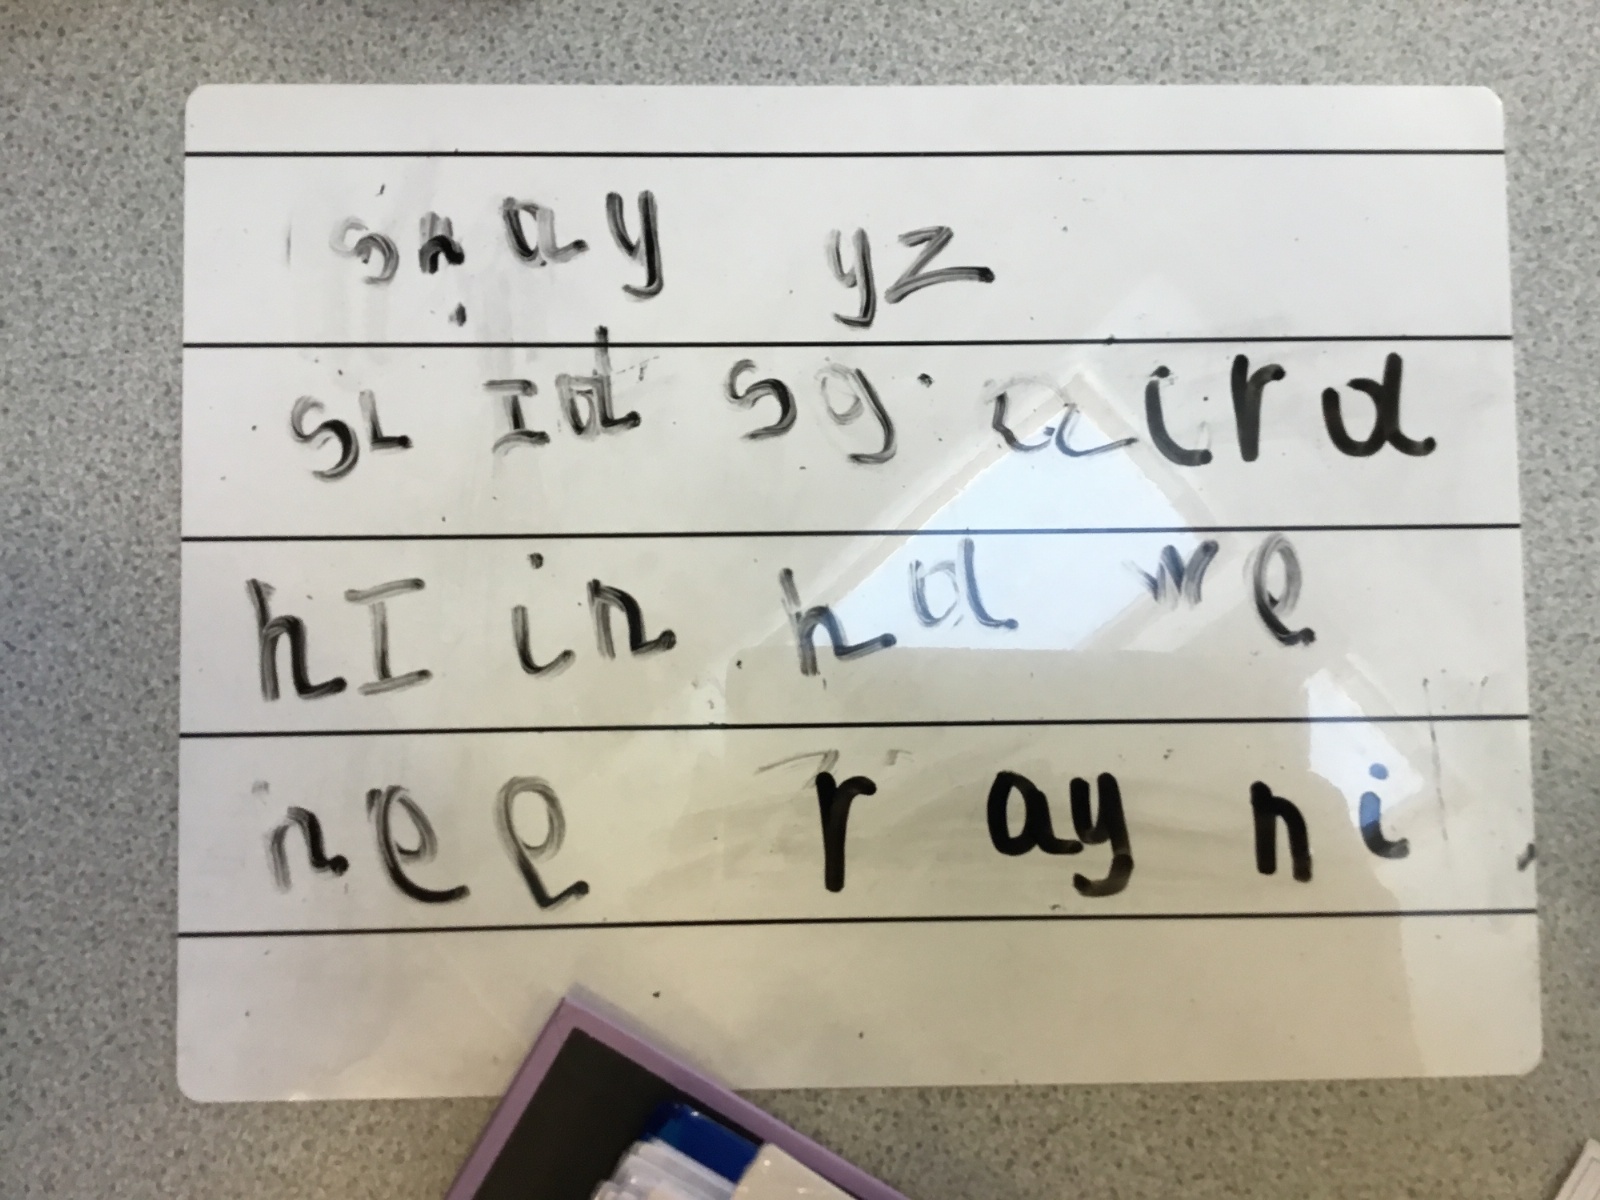 snay yz
SL Id sg a i r d
hI in hd we
nee r ay ni